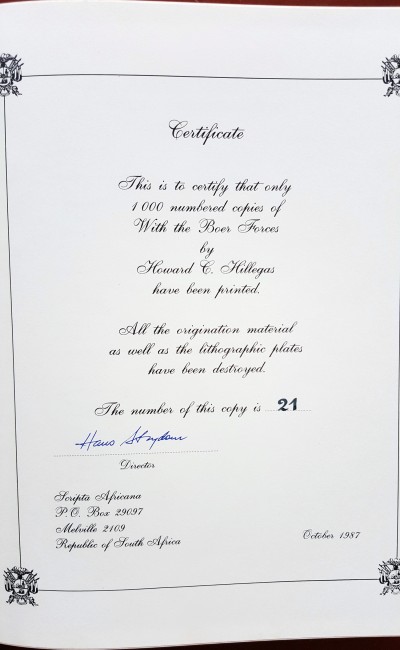 Certificate
This is to certify that only
1 000 numbered copies of
With the Boer Forces
by
Howard C. Hillegas
have been printed.
All the origination material
as well as the lithographic plates
have been destroyed.
The number of this copy is 21
Hans Strydom
Director
Scripta Africana
P.O. Box 29097
Melville 2109
Republic of South Africa
October 1987